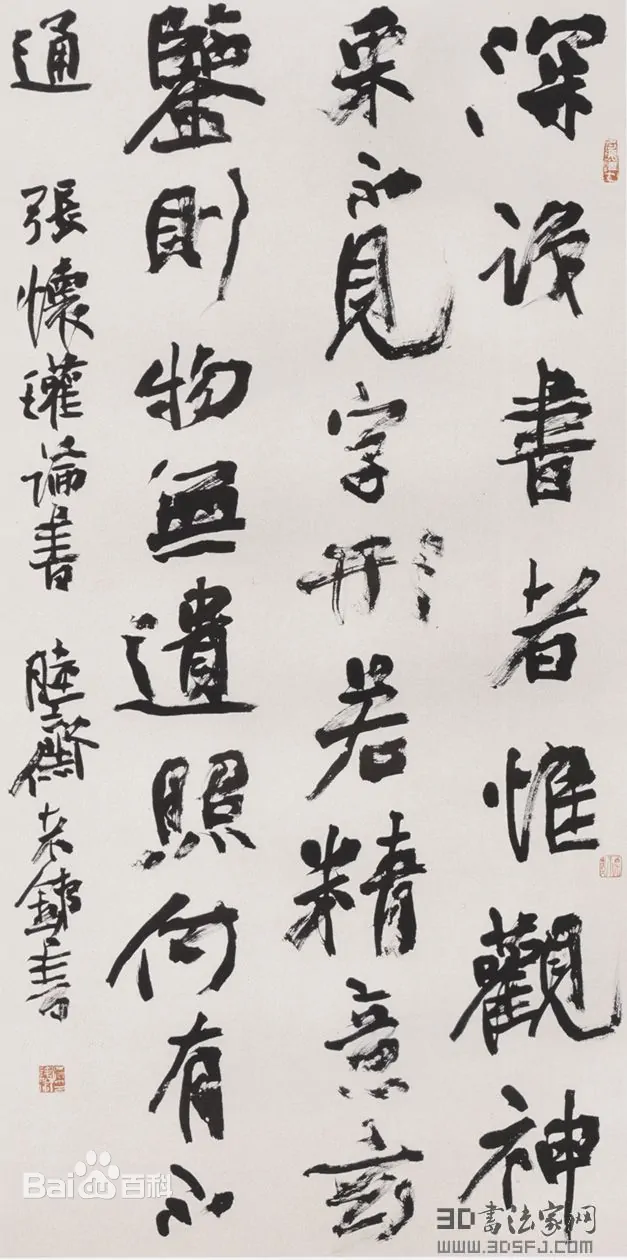 深識書者惟觀神
采不見字形若精意玄
鑒則物無遺照何有不
通 張懷瓘論書 睦齋 書
Bai du 百科
3D书法家网
www.3DSFJ.com